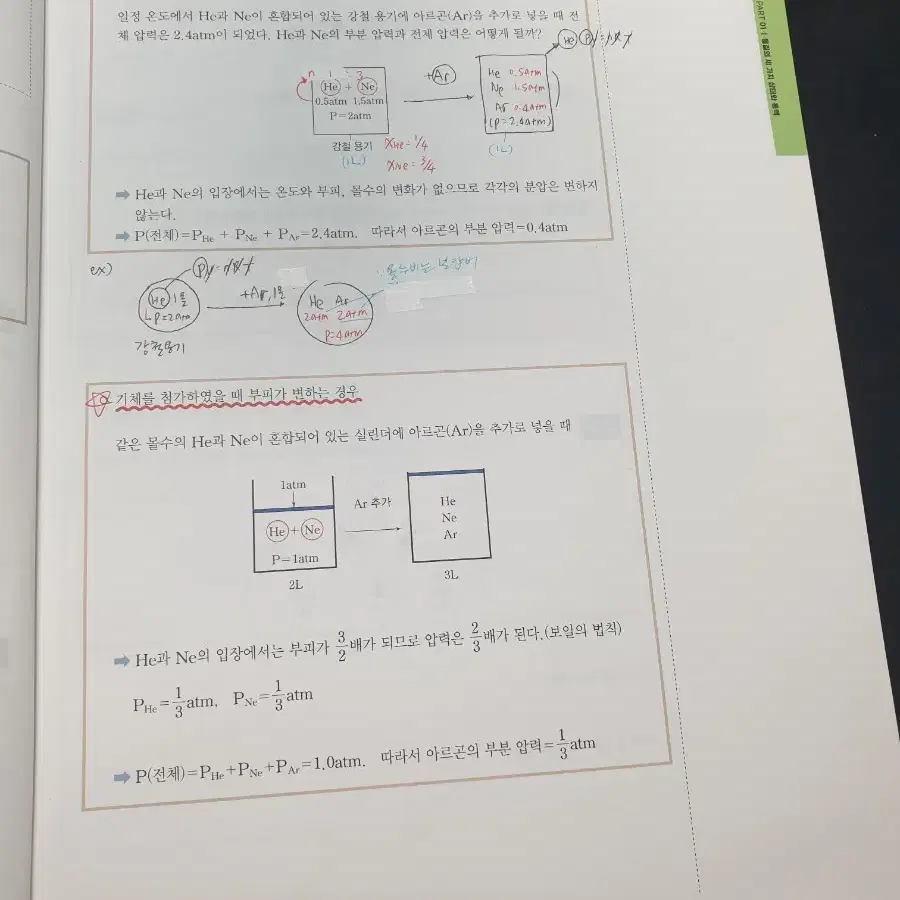 일정 온도에서 He과 Ne이 혼합되어 있는 강철 용기에 아르곤(Ar)을 추가로 넣을 때 전
체 압력은 2.4atm이 되었다. He과 Ne의 부분 압력과 전체 압력은 어떻게 될까?
He
n 1 3
He + Ne
0.5atm 1.5atm
P=2atm
강철 용기
(1L)
xHe=1/4
xNe=3/4
+Ar
He 0.5atm
Ne 1.5atm
Ar 0.4atm
(P=2.4atm)
(1L)
➡ He과 Ne의 입장에서는 온도와 부피, 몰수의 변화가 없으므로 각각의 분압은 변하지
않는다.
➡ P(전체)=PHe + PNe + PAr=2.4atm. 따라서 아르곤의 부분 압력=0.4atm
ex)
He 1몰
P=2atm
강철용기
+Ar, 1몰
He Ar
2atm 2atm
P=4atm
기체를 첨가하였을 때 부피가 변하는 경우
같은 몰수의 He과 Ne이 혼합되어 있는 실린더에 아르곤(Ar)을 추가로 넣을 때
1atm
He + Ne
P=1atm
2L
Ar 추가
He
Ne
Ar
3L
➡ He과 Ne의 입장에서는 부피가 3/2배가 되므로 압력은 2/3배가 된다.(보일의 법칙)
PHe=1/3atm, PNe=1/3atm
➡ P(전체)=PHe+PNe+PAr=1.0atm. 따라서 아르곤의 부분 압력=1/3atm
PART 01